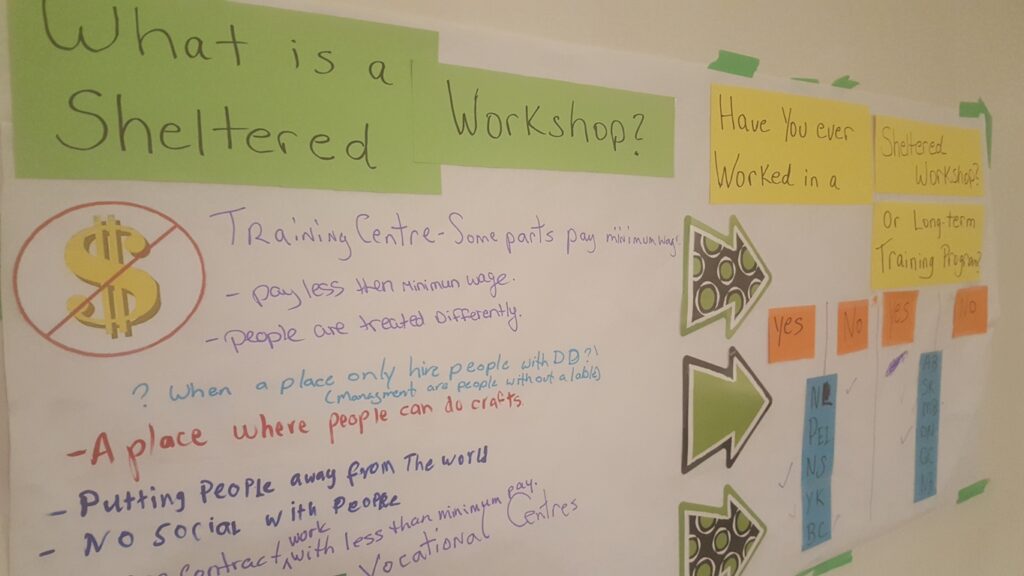 What is a
Sheltered
Workshop?
TRaining Centre - Some parts pay minimum wage.
- pay less then minimun wage.
- people are treated Differently.
? When a place only hire people with DD?
(Managment are people without a lable)
- A place where people can do crafts
- Putting People away from The world
- NO Social with People
contract work with less than minimum pay.
Vocational Centres
Have You ever
Worked in a
Sheltered
Workshop?
Or Long-term
Training Program?
Yes
No
Yes
No
PEI
NS
YK
BC
AB
SK
MB